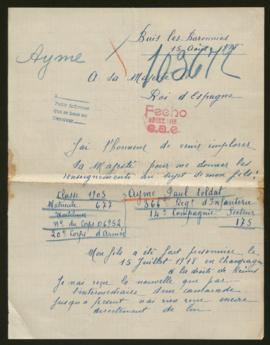 Buis les Baronnies
15 Août 1918
Ayme
103672
A sa Majesté
Roi d'Espagne
Fecho
J'ai l'honneur de venir implorer
sa Majesté pour me donner les
renseignements du sujet de mon fils
Classe 1903 Ayme Paul soldat
Matricule 677 366e Reg d'Infanterie
14e Compagnie Secteur
175
20e Corps d'Armée
Mon fils a été fait prisonnier le
15 Juillet 1918 en Champagne
a la droite de Reims
Je n'ai reçu la nouvelle que par
l'intermédiaire d'un camarade
jusqu'a présent n'ai rien reçu encore
directement de lui